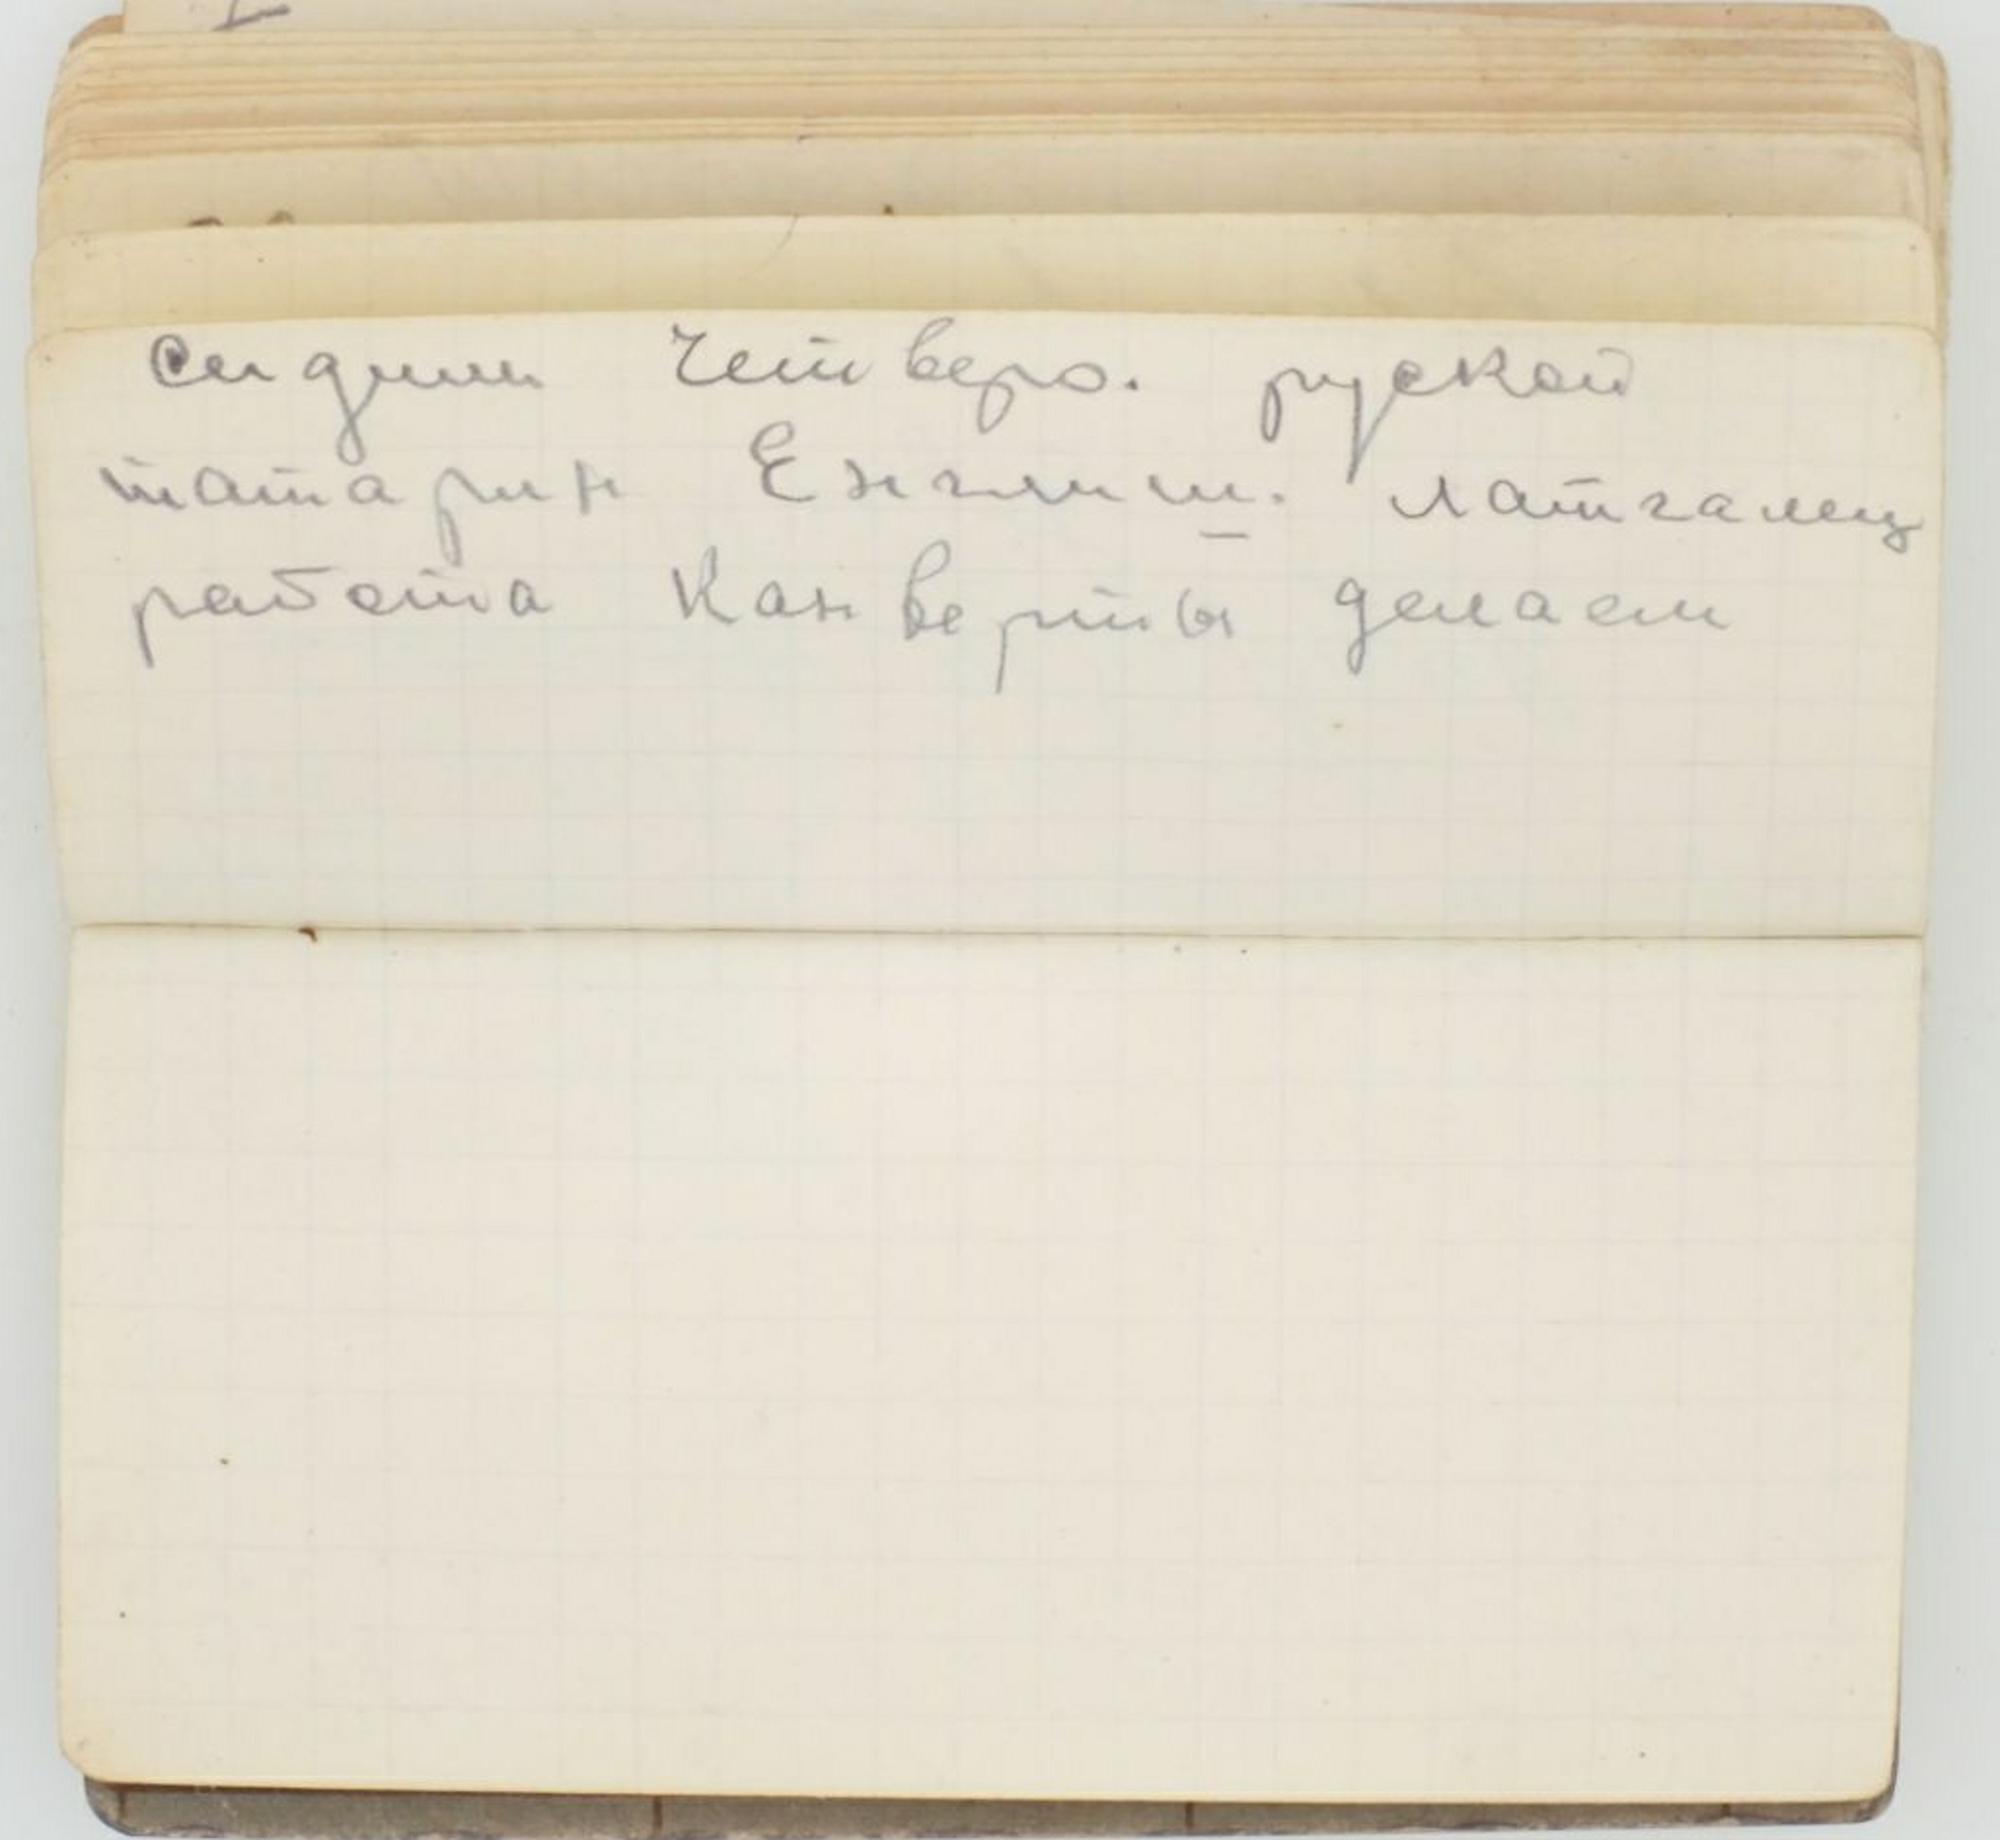 сидим четверо. руской
татарин Енглиш. латгалец
работа канверты делаем